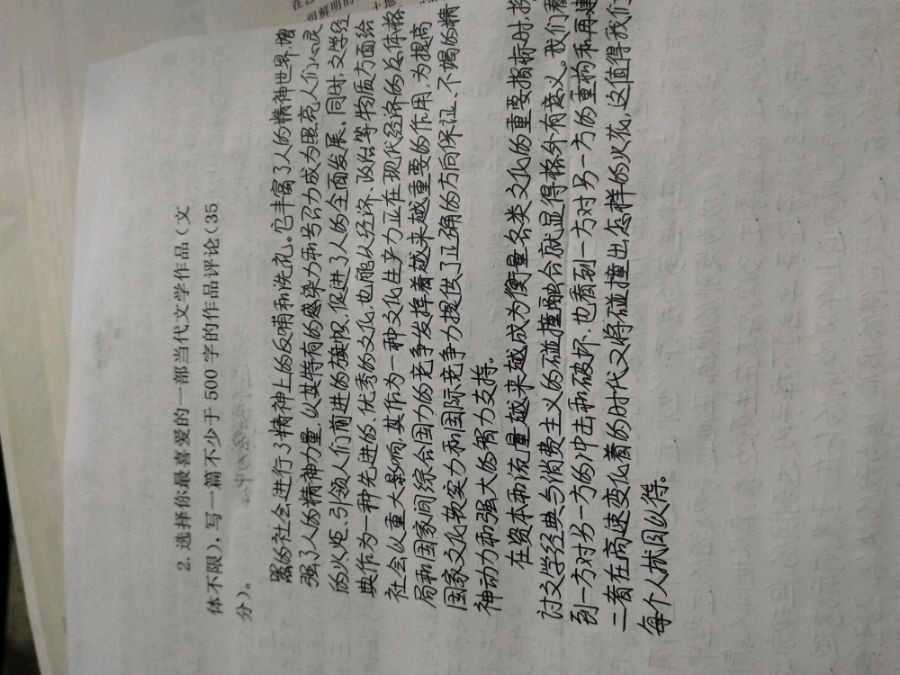 2. 选择你最喜爱的一部当代文学作品（文
体不限），写一篇不少于 500 字的作品评论（35
分）。
器的社会进行了精神上的反哺和洗礼。它丰富了人的精神世界,增
强了人的精神力量,以其特有的感染力和号召力成为照亮人们心灵
的火炬、引领人们前进的旗帜,促进了人的全面发展。同时,文学经
典作为一种先进的、优秀的文化,也能从经济、政治等物质方面给
社会以重大影响,其作为一种文化生产力正在现代经济的总体格
局和国家间综合国力的竞争发挥着越来越重要的作用,为提高
国家文化软实力和国际竞争力提供了正确的方向保证、不竭的精
神动力和强大的智力支持。
在资本和流量越来越成为衡量各类文化的重要指标时,探
讨文学经典与消费主义的碰撞融合就显得格外有意义。我们看
到一方对另一方的冲击和破坏,也看到一方对另一方的重构和再建
二者在高速变化着的时代又将碰撞出怎样的火花,这值得我们
每个人拭目以待。